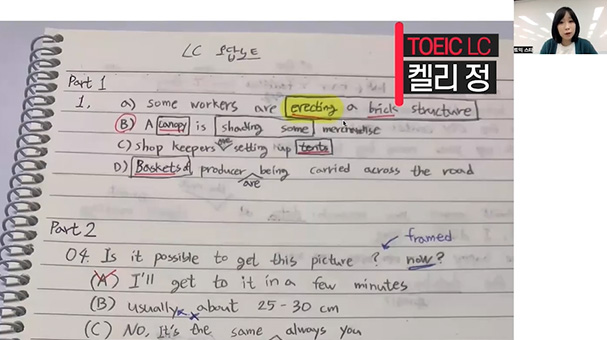 TOEIC LC
켈리 정
LC
Part 1
1. a) some workers are erecting a brick structure
(B) A canopy is shading some merchandise
C) shop keepers are setting up tents
D) Baskets of producer being carried across the road
are
Part 2
framed
04. Is it possible to get this picture ? now?
(A) I'll get to it in a few minutes
(B) usually about 25-30 cm
(C) No, It's the same always you